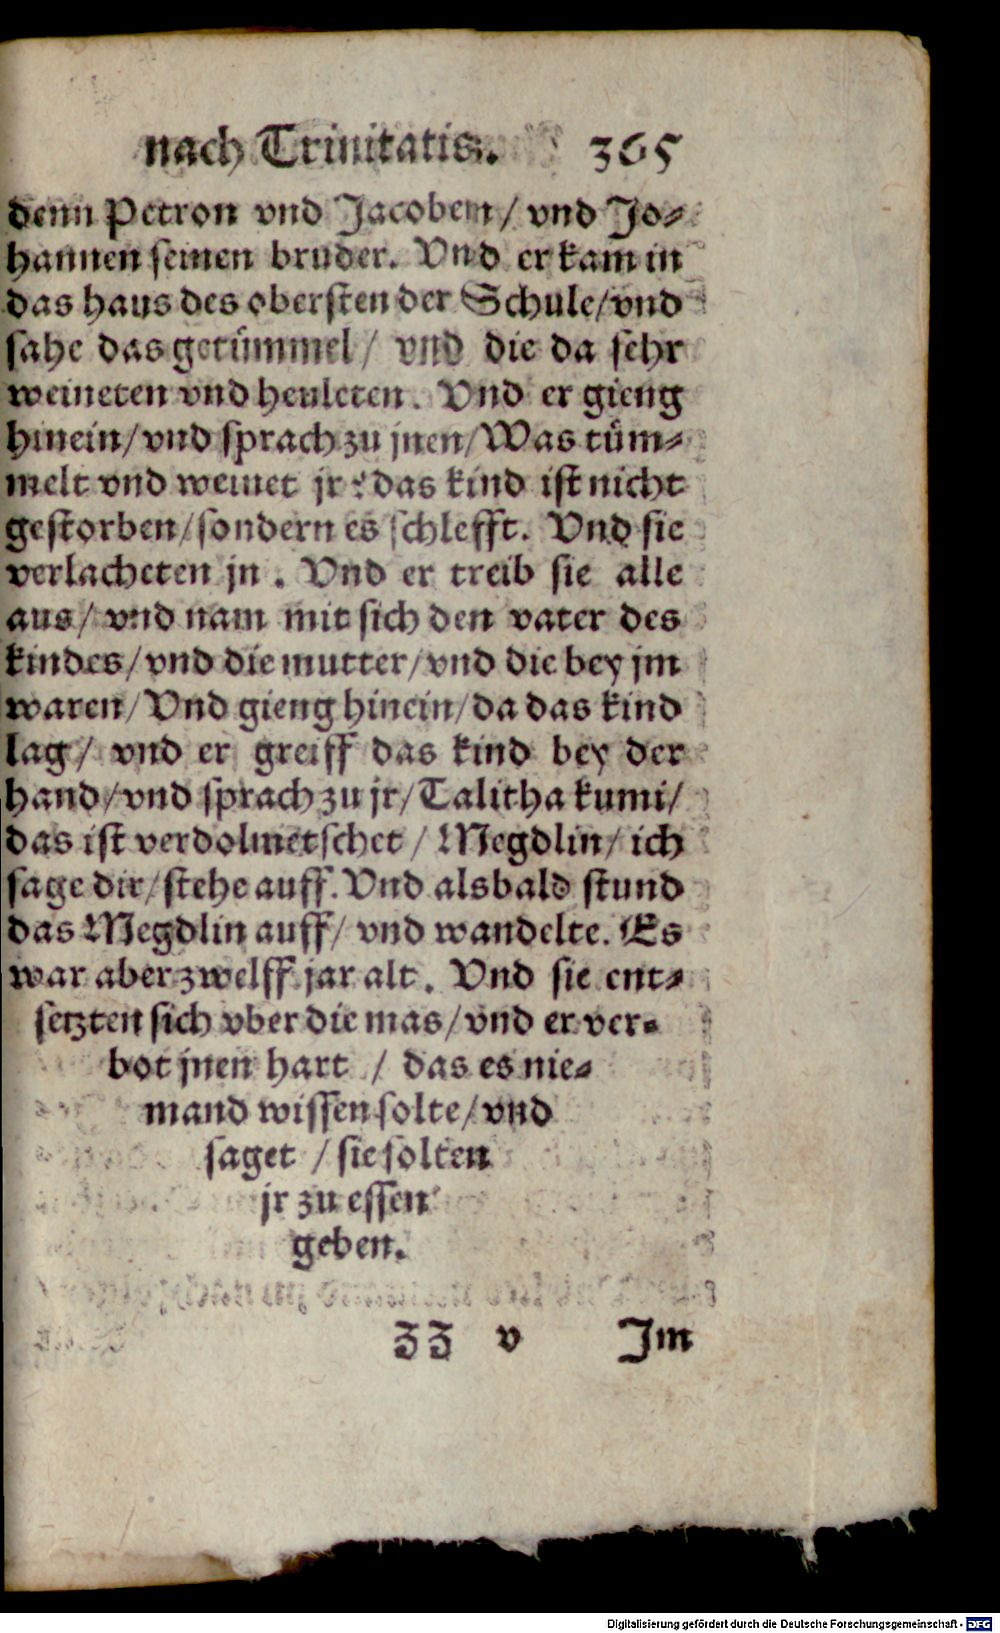 nach Trinitatis. 365
denn Petron vnd Jacobem / vnd Jo⸗
hannen seinen bruder. Vnd er kam in
das haus des obersten der Schule/vnd
sahe das getümmel / vnd die da sehr
weineten vnd heuleten. Vnd er gieng
hinein/vnd sprach zu jnen/Was tüm⸗
melt vnd weinet jr? das kind ist nicht
gestorben/sondern es schlefft. Vnd sie
verlacheten jn. Vnd er treib sie alle
aus/ vnd nam mit sich den vater des
kindes/vnd die mutter/vnd die bey jm
waren/Vnd gieng hinein/da das kind
lag/ vnd er greiff das kind bey der
hand/vnd sprach zu jr/Talitha kumi/
das ist verdolmetschet / Megdlin/ ich
sage dir/stehe auff. Vnd alsbald stund
das Megdlin auff/ vnd wandelte. Es
war aber zwelff jar alt. Vnd sie ent⸗
setzten sich vber die mas/vnd er ver⸗
bot jnen hart / das es nie⸗
mand wissen solte/vnd
saget / sie solten
jr zu essen
geben.
ZZ v Jm
Digitalisierung gefördert durch die Deutsche Forschungsgemeinschaft - DFG